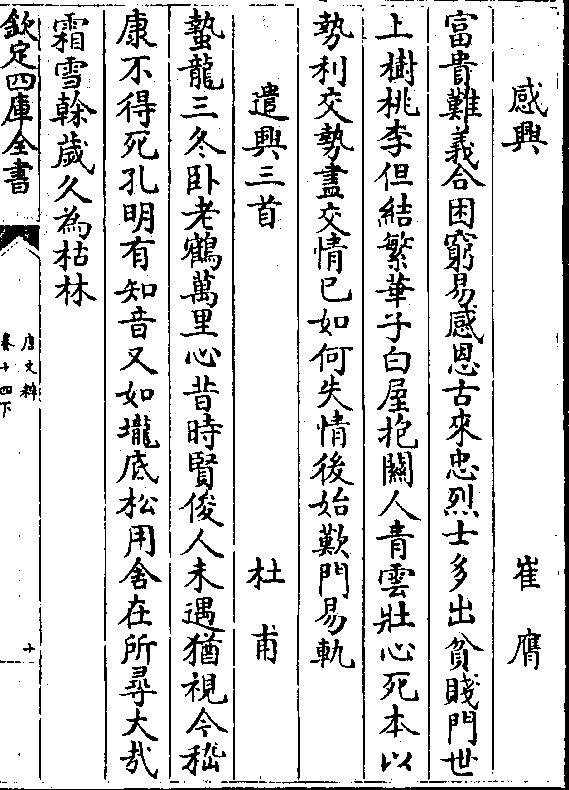 感興　崔膺
富貴難義合困窮易感恩古來忠烈士多出貧賤門世
上樹桃李但結繁華子白屋抱關人青雲壯心死本以
勢利交勢盡交情已如何失情後始歎門易軌
遣興三首　杜甫
蟄龍三冬卧老鶴萬里心昔時賢俊人未遇猶視今嵇
康不得死孔明有知音又如壠底松用舍在所尋大哉
霜雪榦歲久為枯林
欽定四庫全書
唐文粹
卷十四下
十